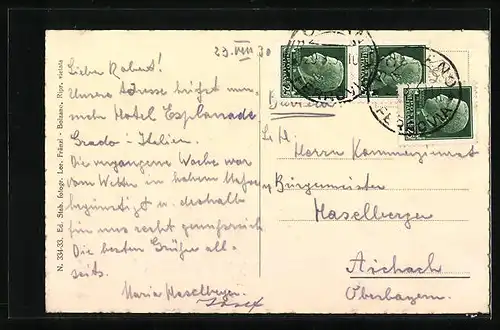 23. VIII 30
Lieber Robert!
Unsere Adresse heißt nun-
mehr Hotel Esplanade
Grado - Italien.
Die vergangene Woche war
vom Wetter in hohem
begünstigt u. deshalb
für uns recht
Die besten Grüße all-
seits.
Maria Haselberger
Josef
N. 334-33. Ed. Stab. fotogr. Leo. Fränzl - Bolzano. Ripr. vietata
(Baviera)
Herrn Kommerzienrat
Bürgermeister
Haselberger
Aichach
Oberbayern.